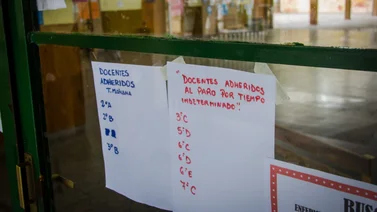 DOCENTES
ADHERIDOS
T. Mañana
2°A
3°B
3°B
"DOCENTES ADHERIDOS
AL PARO POR TIEMPO
INDETERMINADO".
3°C
5°D
6°C
6°D
6°E
7°C